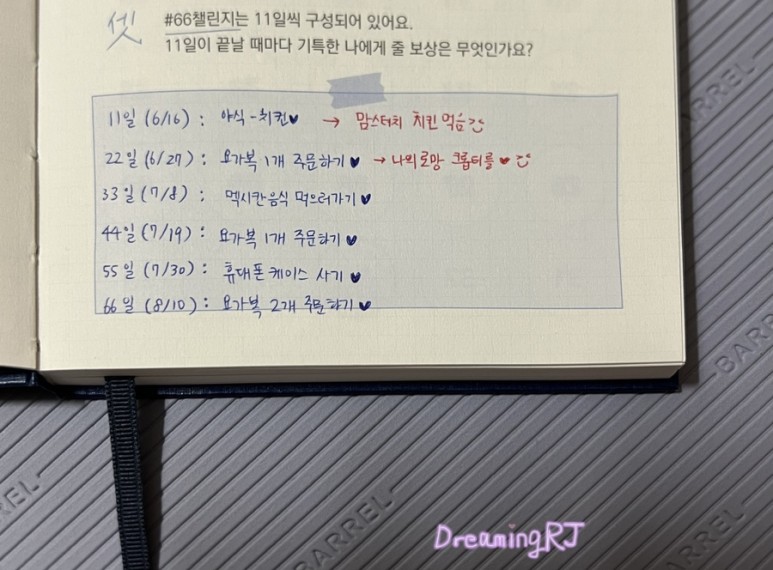 셋
#66챌린지는 11일씩 구성되어 있어요.
11일이 끝날 때마다 기특한 나에게 줄 보상은 무엇인가요?
11일 (6/16) : 야식-치킨♥ → 맘스터치 치킨 먹음
22일 (6/27) : 요가복 1개 주문하기♥ → 나의 로망 크롭티를♥
33일 (7/8) : 멕시칸음식 먹으러가기♥
44일 (7/19) : 요가복 1개 주문하기♥
55일 (7/30) : 휴대폰케이스 사기♥
66일 (8/10) : 요가복 2개 주문하기♥
BARREL
BARREL
BARREL
DreamingRJ